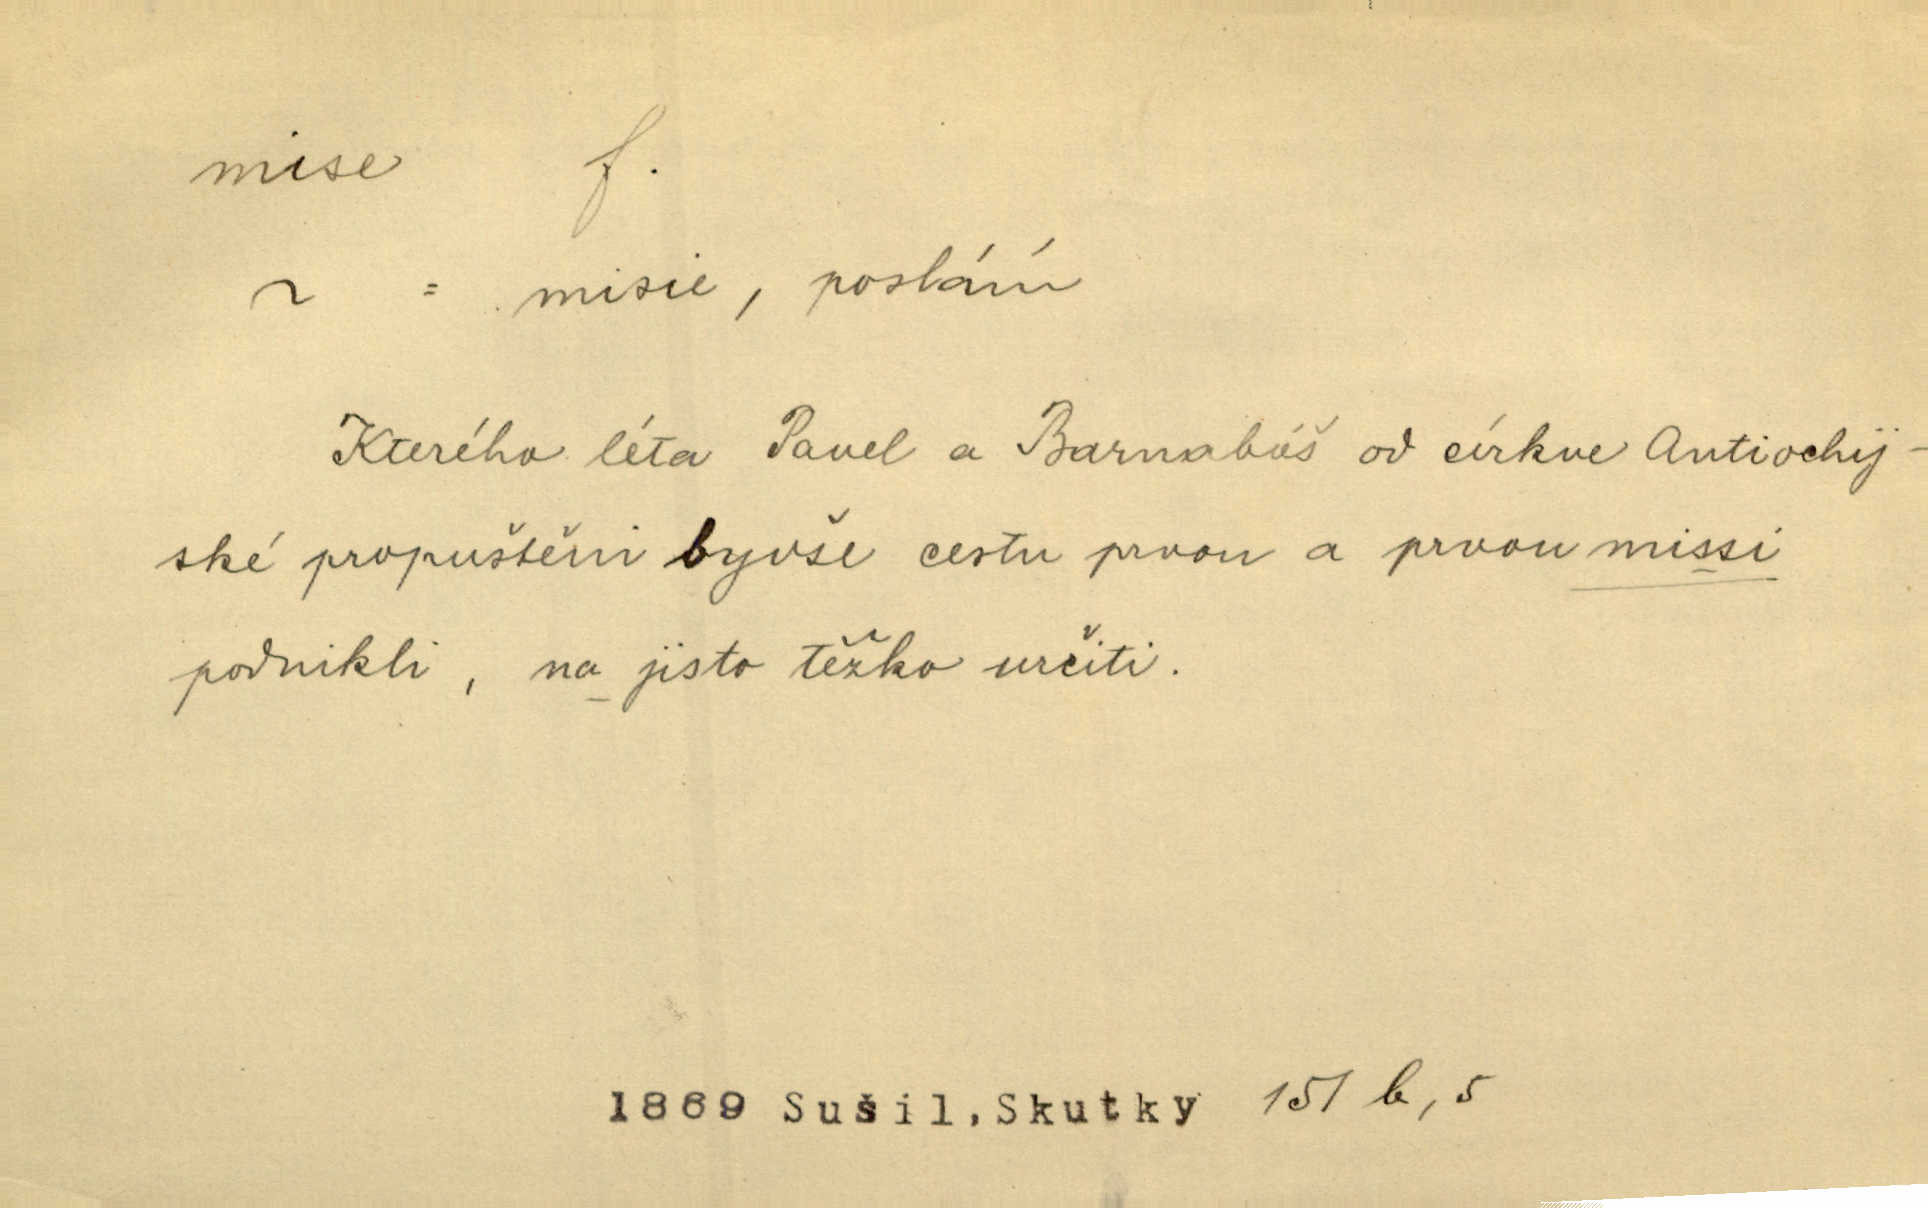 mise f.
~ = misie, poslání
Kterého léta Pavel a Barnabáš od církve Antiochij-
ské propuštěni byvše cestu prvou a prvou missi
podnikli, na jisto těžko určiti.
1869 Sušil, Skutky 151 b, 5